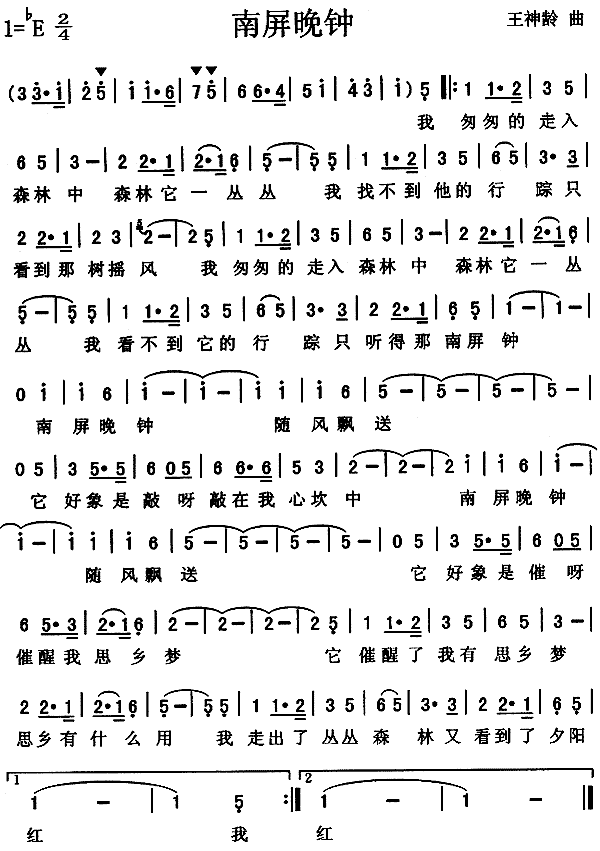 1=♭E 2/4 南屏晚钟 王神龄 曲
(3 3·i | 2 5 | i i·6 | 7 5 | 6 6·4 | 5 i | 4 3 | i ) 5 ‖: 1 1·2 | 3 5 |
我 匆匆的 走入
6 5 | 3 - | 2 2·1 | 2·1 6 | 5 - | 5 5 | 1 1·2 | 3 5 | 6 5 | 3·3 |
森林 中 森林它 一 丛 丛 我 找不到 他的 行 踪只
2 2·1 | 2 3 | 2 - | 2 5 | 1 1·2 | 3 5 | 6 5 | 3 - | 2 2·1 | 2·1 6 |
看到那 树摇 风 我 匆匆的 走入 森林 中 森林它 一 丛
5 - | 5 5 | 1 1·2 | 3 5 | 6 5 | 3·3 | 2 2·1 | 6 5 | 1 - | 1 - |
丛 我 看不到 它的 行 踪只 听得那 南屏 钟
0 i | i 6 | i - | i - | i i | i 6 | 5 - | 5 - | 5 - | 5 - |
南 屏晚 钟 随 风飘 送
0 5 | 3 5·5 | 6 0 5 | 6 6·6 | 5 3 | 2 - | 2 - | 2 i | i 6 | i - |
它 好象是 敲 呀 敲在我 心坎 中 南 屏晚 钟
i - | i i | i 6 | 5 - | 5 - | 5 - | 5 - | 0 5 | 3 5·5 | 6 0 5 |
随 风飘 送 它 好象是 催 呀
6 5·3 | 2·1 6 | 2 - | 2 - | 2 - | 2 5 | 1 1·2 | 3 5 | 6 5 | 3 - |
催醒我 思 乡 梦 它 催醒了 我有 思乡 梦
2 2·1 | 2·1 6 | 5 - | 5 5 | 1 1·2 | 3 5 | 6 5 | 3·3 | 2 2·1 | 6 5 |
思乡有 什 么 用 我 走出了 丛丛 森 林又 看到了 夕阳
1 2
1 - | 1 5 :‖ 1 - | 1 - ‖
红 我 红